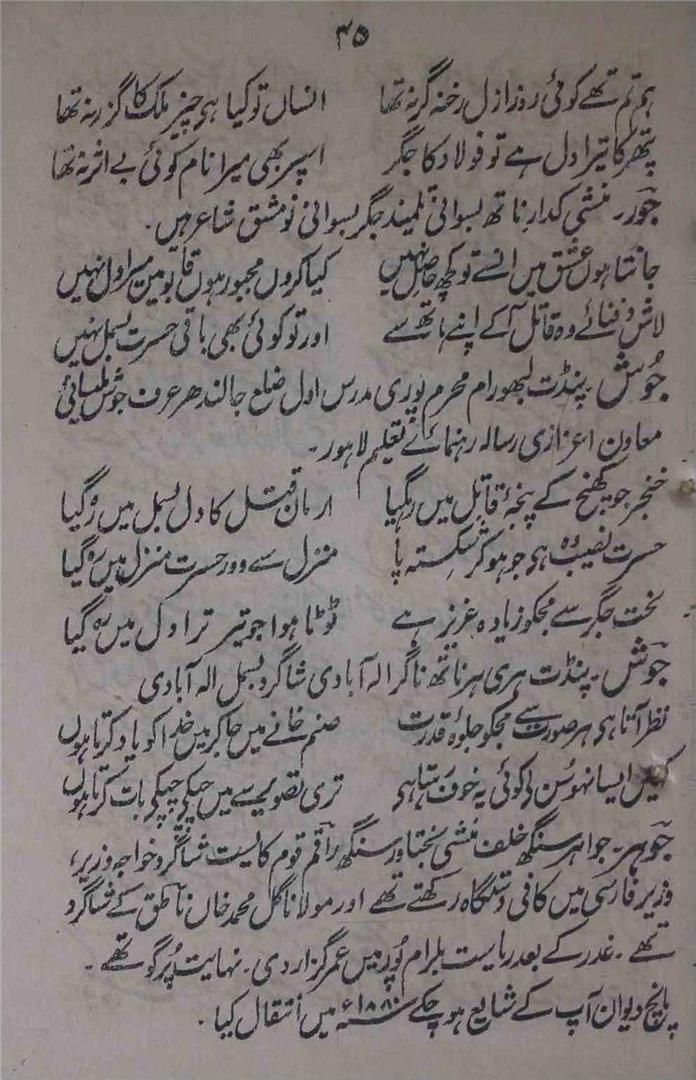 ۴۵
ہم تم تھے کوئی روز ازل رخنہ گر نہ تھا انساں تو کیا ہی چیز ملک کا گزر نہ تھا
پتھر کا تیرا دل ہے تو فولاد کا جگر اسپر بھی میرا نام کوئی بے اثر نہ تھا
جور۔ منشی کدار ناتھ بسوانی تلمیند جگر بسوانی نو مشق شاعر ہیں۔
جانتا ہوں عشق میں انسے تو کچھ حاصل نہیں کیا کروں مجبور ہوں قابو میں میرا دل نہیں
لاش دفنائے وہ قاتل آکے اپنے ہاتھ سے اور تو کوئی بھی باقی حسرت بسمل نہیں
جوش۔ پنڈت لبھو رام محرم پوری مدرس اول ضلع جالندھر عرف جوش ملسیانی
معاون اعزازی رسالہ رہنمائے تعلیم لاہور۔
خنجر جو کھنچ کے پنجۂ قاتل میں رہگیا ارمان قتل کا دل بسمل میں رہ گیا
حسرت نصیب وہ ہی جو ہو کر شکستہ پا منزل سے دور حسرت منزل میں رہ گیا
لخت جگر سے مجکو زیادہ عزیز ہے ٹوٹا ہوا جو تیر ترا دل میں رہ گیا
جوش۔ پنڈت ہری ہر ناتھ ناگر الہ آبادی شاگرد بسمل الہ آبادی
نظر آتا ہی ہر صورت سے مجکو جلوۂ قدرت صنم خانے میں جا کر میں خدا کو یاد کرتا ہوں
کہیں ایسا نہو سن لے کوئی یہ خوف رہتا ہی تری تصویر سے میں چپکے چپکے بات کرتا ہوں
جوہر۔ جواہر سنگھ خلف منشی بختاور سنگھ راقم قوم کایست شاگرد خواجہ وزیر،
وزیر فارسی میں کافی دستگاہ رکھتے تھے اور مولانا گل محمد خاں ناطق کے شاگرد
تھے۔ غدر کے بعد ریاست بلرام پور میں عمر گزار دی۔ نہایت پُر گو تھے۔
پانچ دیوان آپ کے شایع ہو چکے ۱۸۸۰ء میں انتقال کیا۔